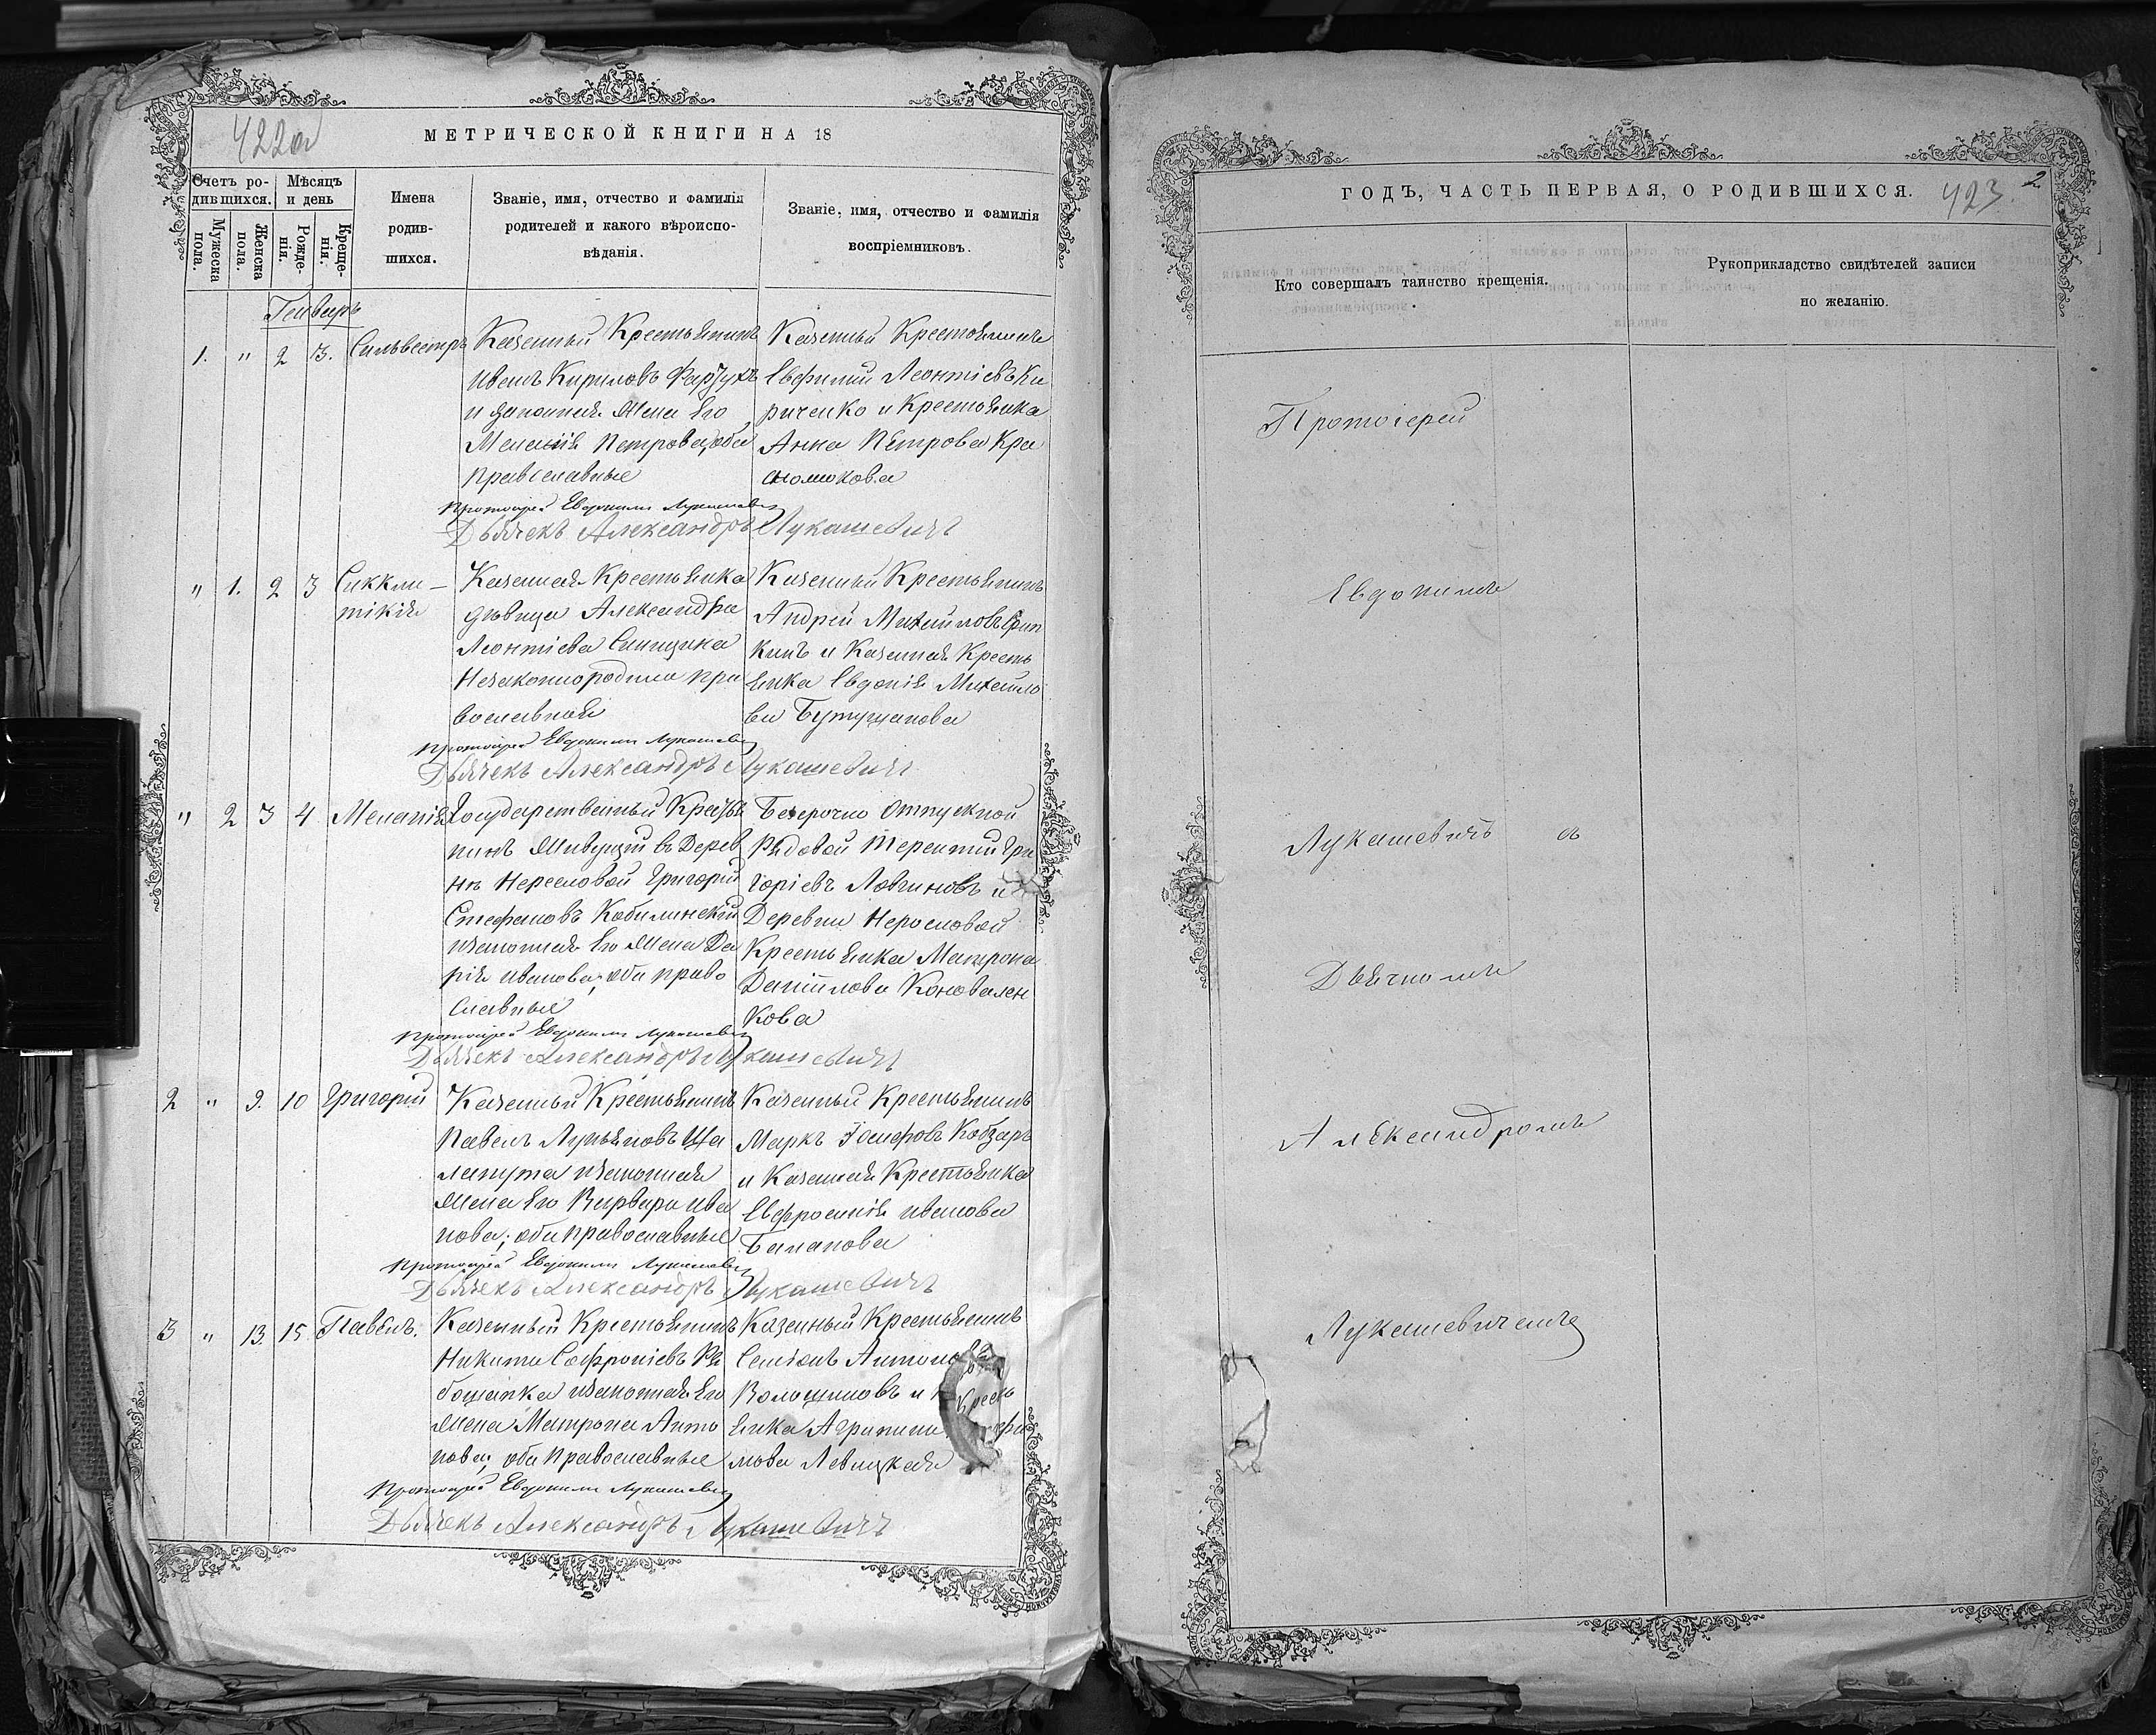 422об
МЕТРИЧЕСКОЙ КНИГИ НА 18
Счетъ ро-
дившихся.
Мѣсяцъ
и день
Мужеска
пола.
Женска
пола.
Рожде-
нія.
Креще-
нія.
Имена
родив-
шихся.
Званіе, имя, отчество и фамилія
родителей и какого вѣроиспо-
вѣданія.
Званіе, имя, отчество и фамилія
воспріемниковъ.
Генварь
1. " 2 3. Сильвестръ
Казенный Крестьянинъ
Иванъ Кириловъ Фартухъ
и законная жена его
Меланія Петрова, оба
православные
Казенный Крестьянинъ
Евфимій Леонтіевъ Ки
риченко и Крестьянка
Анна Петрова Кра
снолюкова
Протоіерей Евдокимъ Лукашевичъ
Дьячекъ Александръ Лукашевичъ
" 1. 2 3 Сиккли-
тікія
Казенная Крестьянка
дѣвица Александра
Леонтіева
Незаконнородила пра
вославная
Казенный Крестьянинъ
Андрей Михайловъ
кинъ и Казенная Кресть
янка Евдокія Михайло
ва
Протоіерей Евдокимъ Лукашевичъ
Дьячекъ Александръ Лукашевичъ
" 2 3 4 Меланія
Государственный Кресть
нинъ Живущій въ Дерев
нѣ Нересловой Григорій
Стефановъ Кобилинскій
изаконная его жена Да
рія Иванова, оба право
славные
Безсрочно отпускной
Рядовой Терентій Гри
горіевъ Логиновъ и
Деревни Нерословой
Крестьянка Матрона
Даніилова Коновален
кова
Протоіерей Евдокимъ Лукашевичъ
Дьячекъ Александръ Лукашевичъ
2 " 9. 10 Григорій
Казенный Крестьянинъ
Павелъ Лукьяновъ Ща
лапута изаконная
жена его Варвара Ива
нова; оба православные
Казенный Крестьянинъ
Маркъ Іосифовъ Кобзарь
и Казенная Крестьянка
Евфросинія Иванова
Баланова
Протоіерей Евдокимъ Лукашевичъ
Дьячекъ Александръ Лукашевичъ
3 " 13. 15 Павелъ.
Казенный Крестьянинъ
Никита Софроніевъ Ря
бошапка изаконная его
жена Матрона Анто
нова; оба Православные
Казенный Крестьянинъ
Семіонъ Антоновъ
Волошиновъ и Кресть
янка Агрипина
мова Левицкая
Протоіерей Евдокимъ Лукашевичъ
Дьячекъ Александръ Лукашевичъ
ГОДЪ, ЧАСТЬ ПЕРВАЯ, О РОДИВШИХСЯ.
423
2.
Кто совершалъ таинство крещенія.
Рукоприкладство свидѣтелей записи
по желанію.
Протоіерей
Евдокимъ
Лукашевичъ съ
Дьячкомъ
Александромъ
Лукашевичемъ